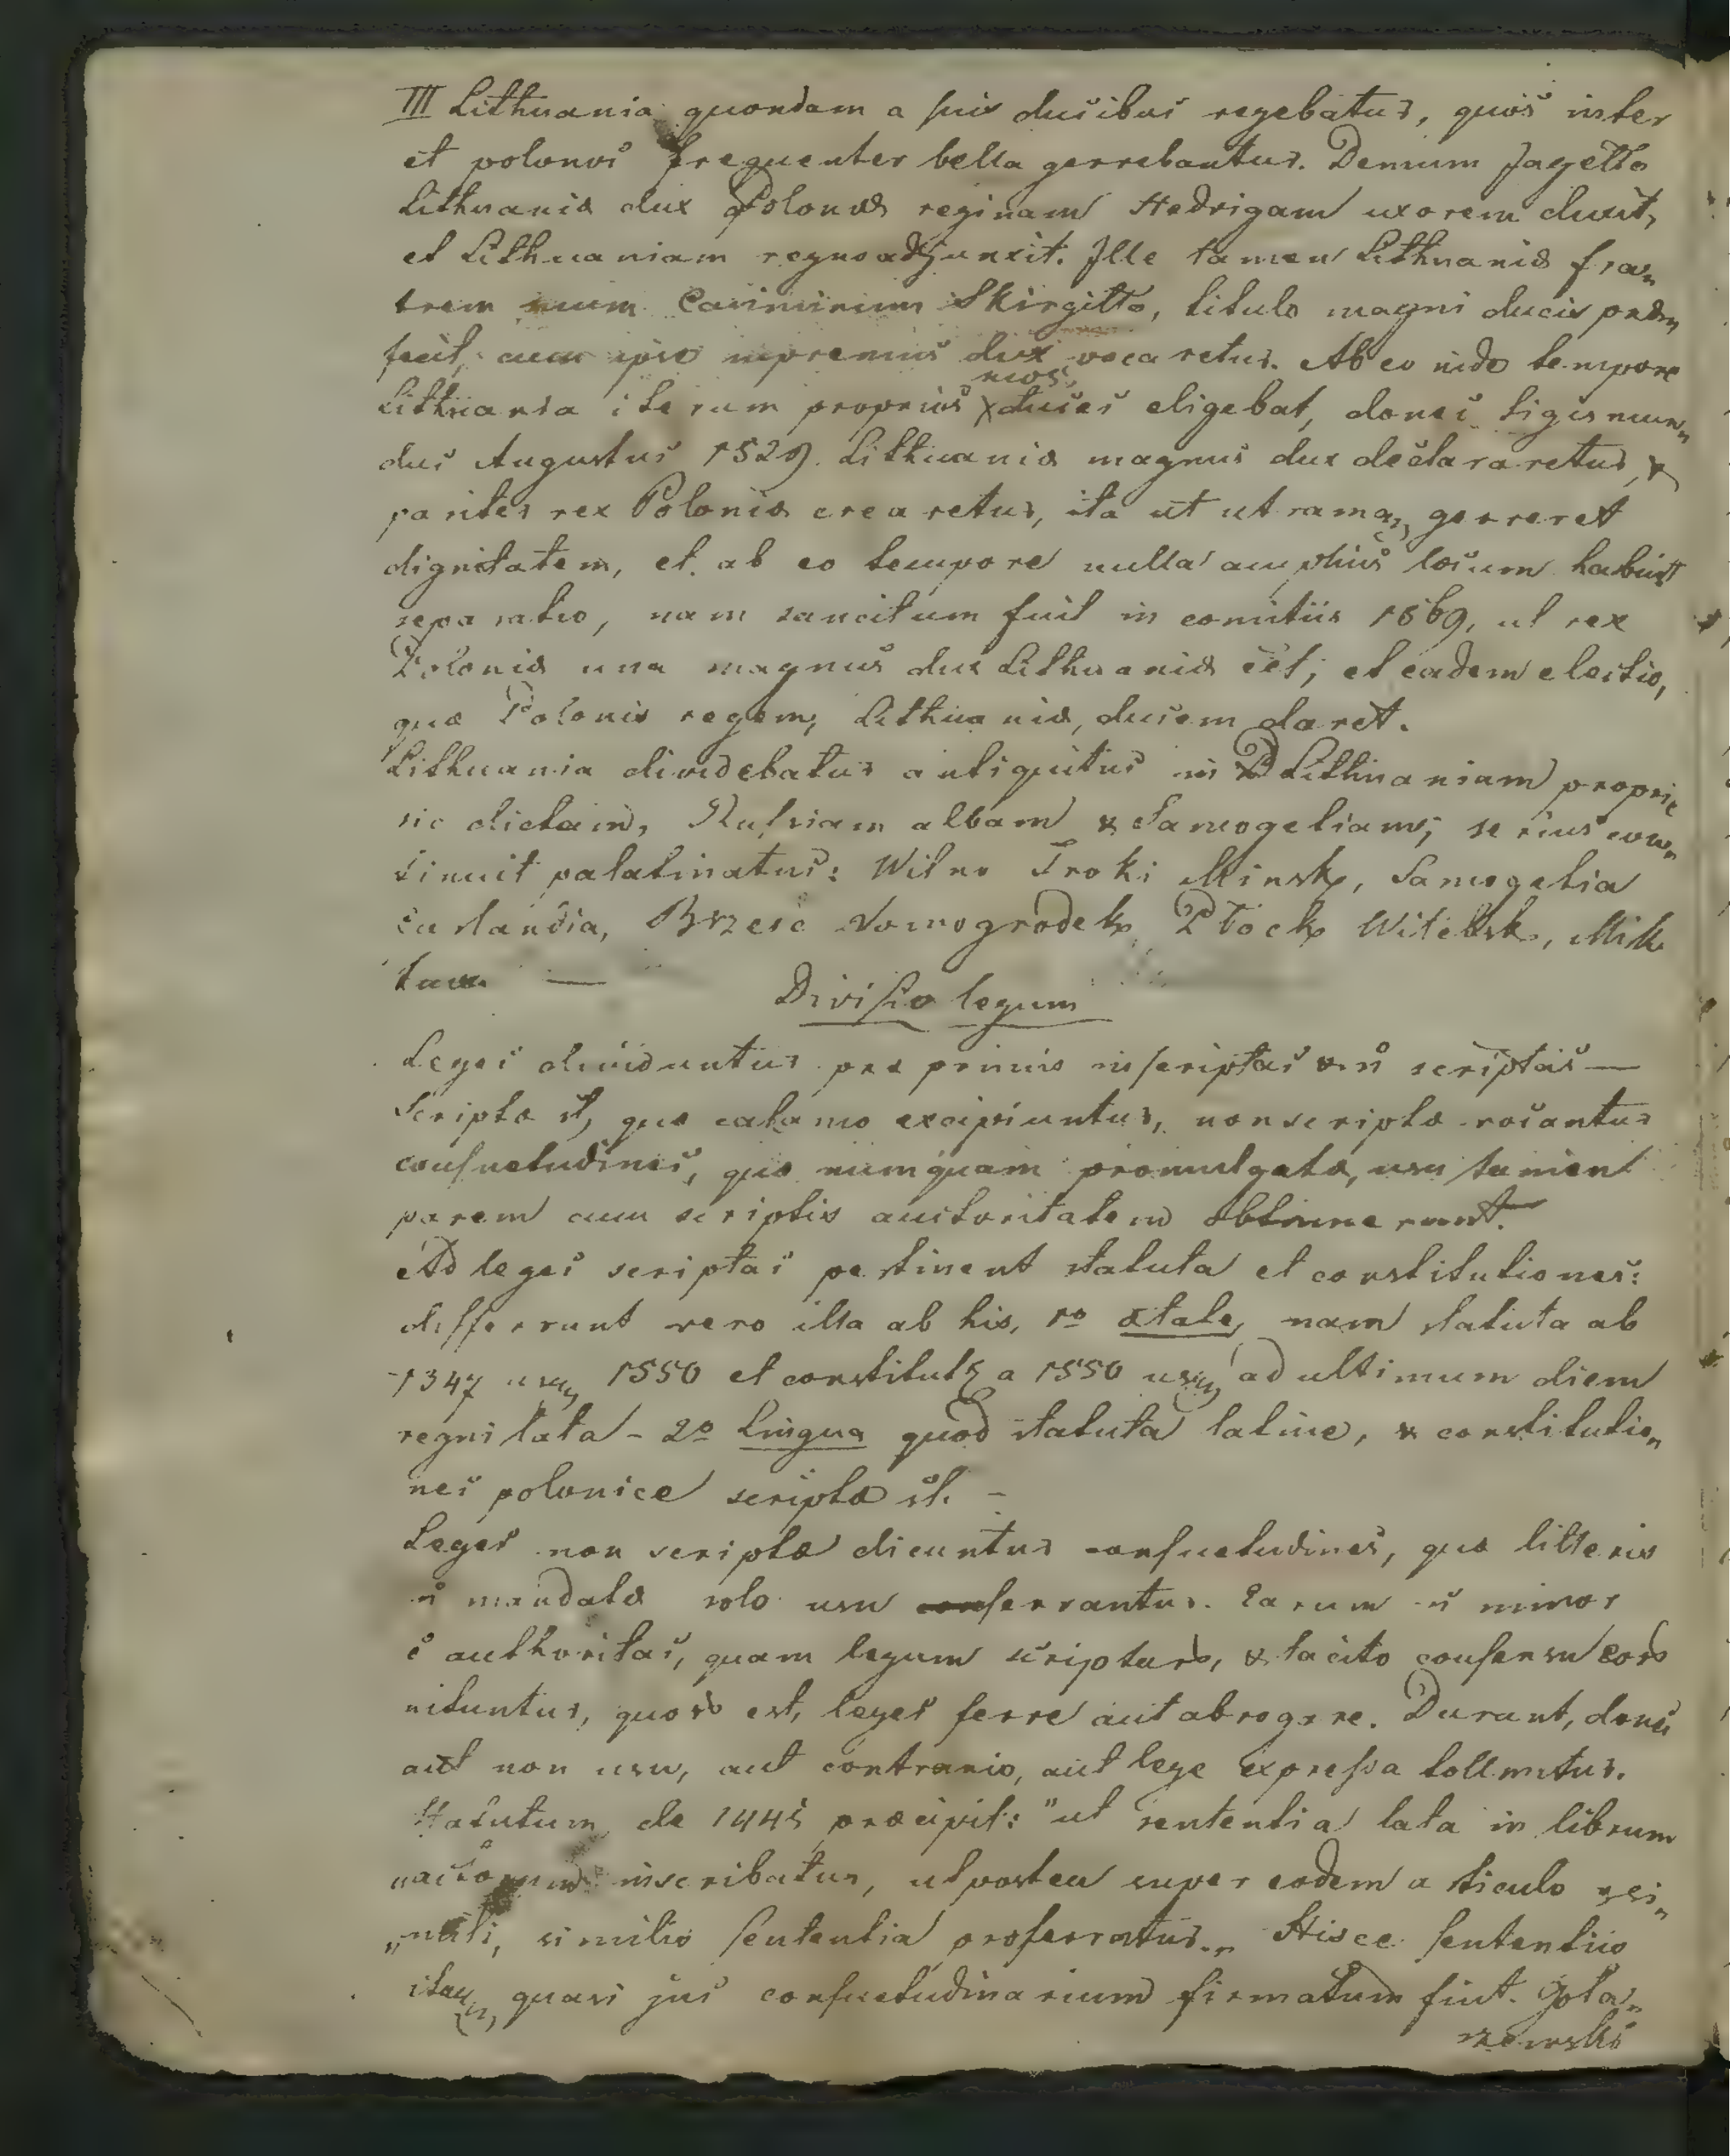 III Lithuania quondam a suis ducibus regebatur, quos inter
et polonos frequenter bella gerrebantur. Demum Jagello
Lithuaniæ dux Polonos reginam Hedrigam uxorem duxit,
et Lithuaniam regno adjunxit. Ille tamen Lithuaniæ fra„
trem suum Casimirum Skirgillo, titulo magni ducis præ„
fecit, cum ipse supremus dux vocaretur. Ab eo inde tempore
Lithuania iterum proprios suos duces eligebat, donec Sigismun„
dus Augustus 1529. Lithuaniæ magnus dux declararetur, &
pariter rex Poloniæ crearetur, ita ut utramq, gerreret
dignitatem, et ab eo tempore nulla amplius locum habuit
separatio, nam sancitum fuit in comitiis 1569, ut rex
Poloniæ una magnus dux Lithuaniæ eet; et eadem electio,
quæ Polonis regem, Lithuaniæ, ducem daret.
Lithuania dividebatur antiquitus in Lithuaniam proprie
sic dictam, Russiam albam & Samogetiam; serius con„
tinuit palatinatus: Wilno Troki Minsk, Samogetia
Curlandia, Brzesc Nowogrodek Płock Witebsk, Mik
taw. —
Divisio legum
Leges dividuntur præ primis in scriptas & n̄ scriptas —
Scriptæ st, quæ calamo excipiuntur, non scriptæ vocantur
consuetudines, quæ numquam promulgatæ, usu tament
parem cum scriptis auctoritatem obtinnerunt.
Ad leges scriptas pertinent statuta et constitutiones:
differrunt vero illa ab his, 1º ætate, nam statuta ab
1347 usq, 1550 et constitut a 1550 usq, ad ultimum diem
regni lata - 2º Lingua quod statuta latine, & constitutio„
nes polonice scriptæ st. -
Leges non scriptæ dicuntur consuetudines, quæ litteris
n̄ mandatæ solo usu conserrantur. Earum n̄ minor
ē authoritas, quam legum scriptar, & tacito consensu eor
nituntur, quor est, leges ferre aut abrogare. Durant, donec
aut non usu, aut contrario, aut lege expressa tolluntur.
Statutum de 1445 præcipit: "ut sententia lata in librum
„actorum inscribatur, ut postea super eodem articulo & si„
„mili, similis sententia proferratur.„ Hisce sententiis
itaq, quasi jus consuetudinarium firmatum fuit. Gola„
rzewski